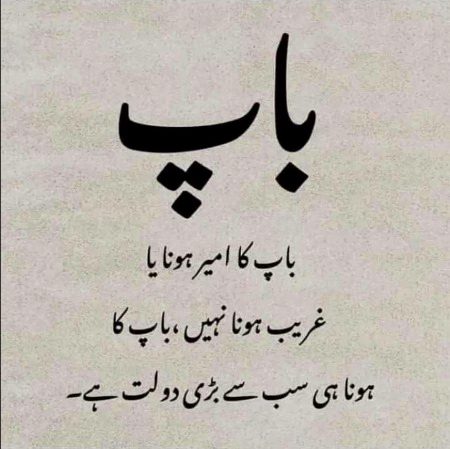 باپ
باپ کا امیر ہونا یا
غریب ہونا نہیں ،باپ کا
ہونا ہی سب سے بڑی دولت ہے۔